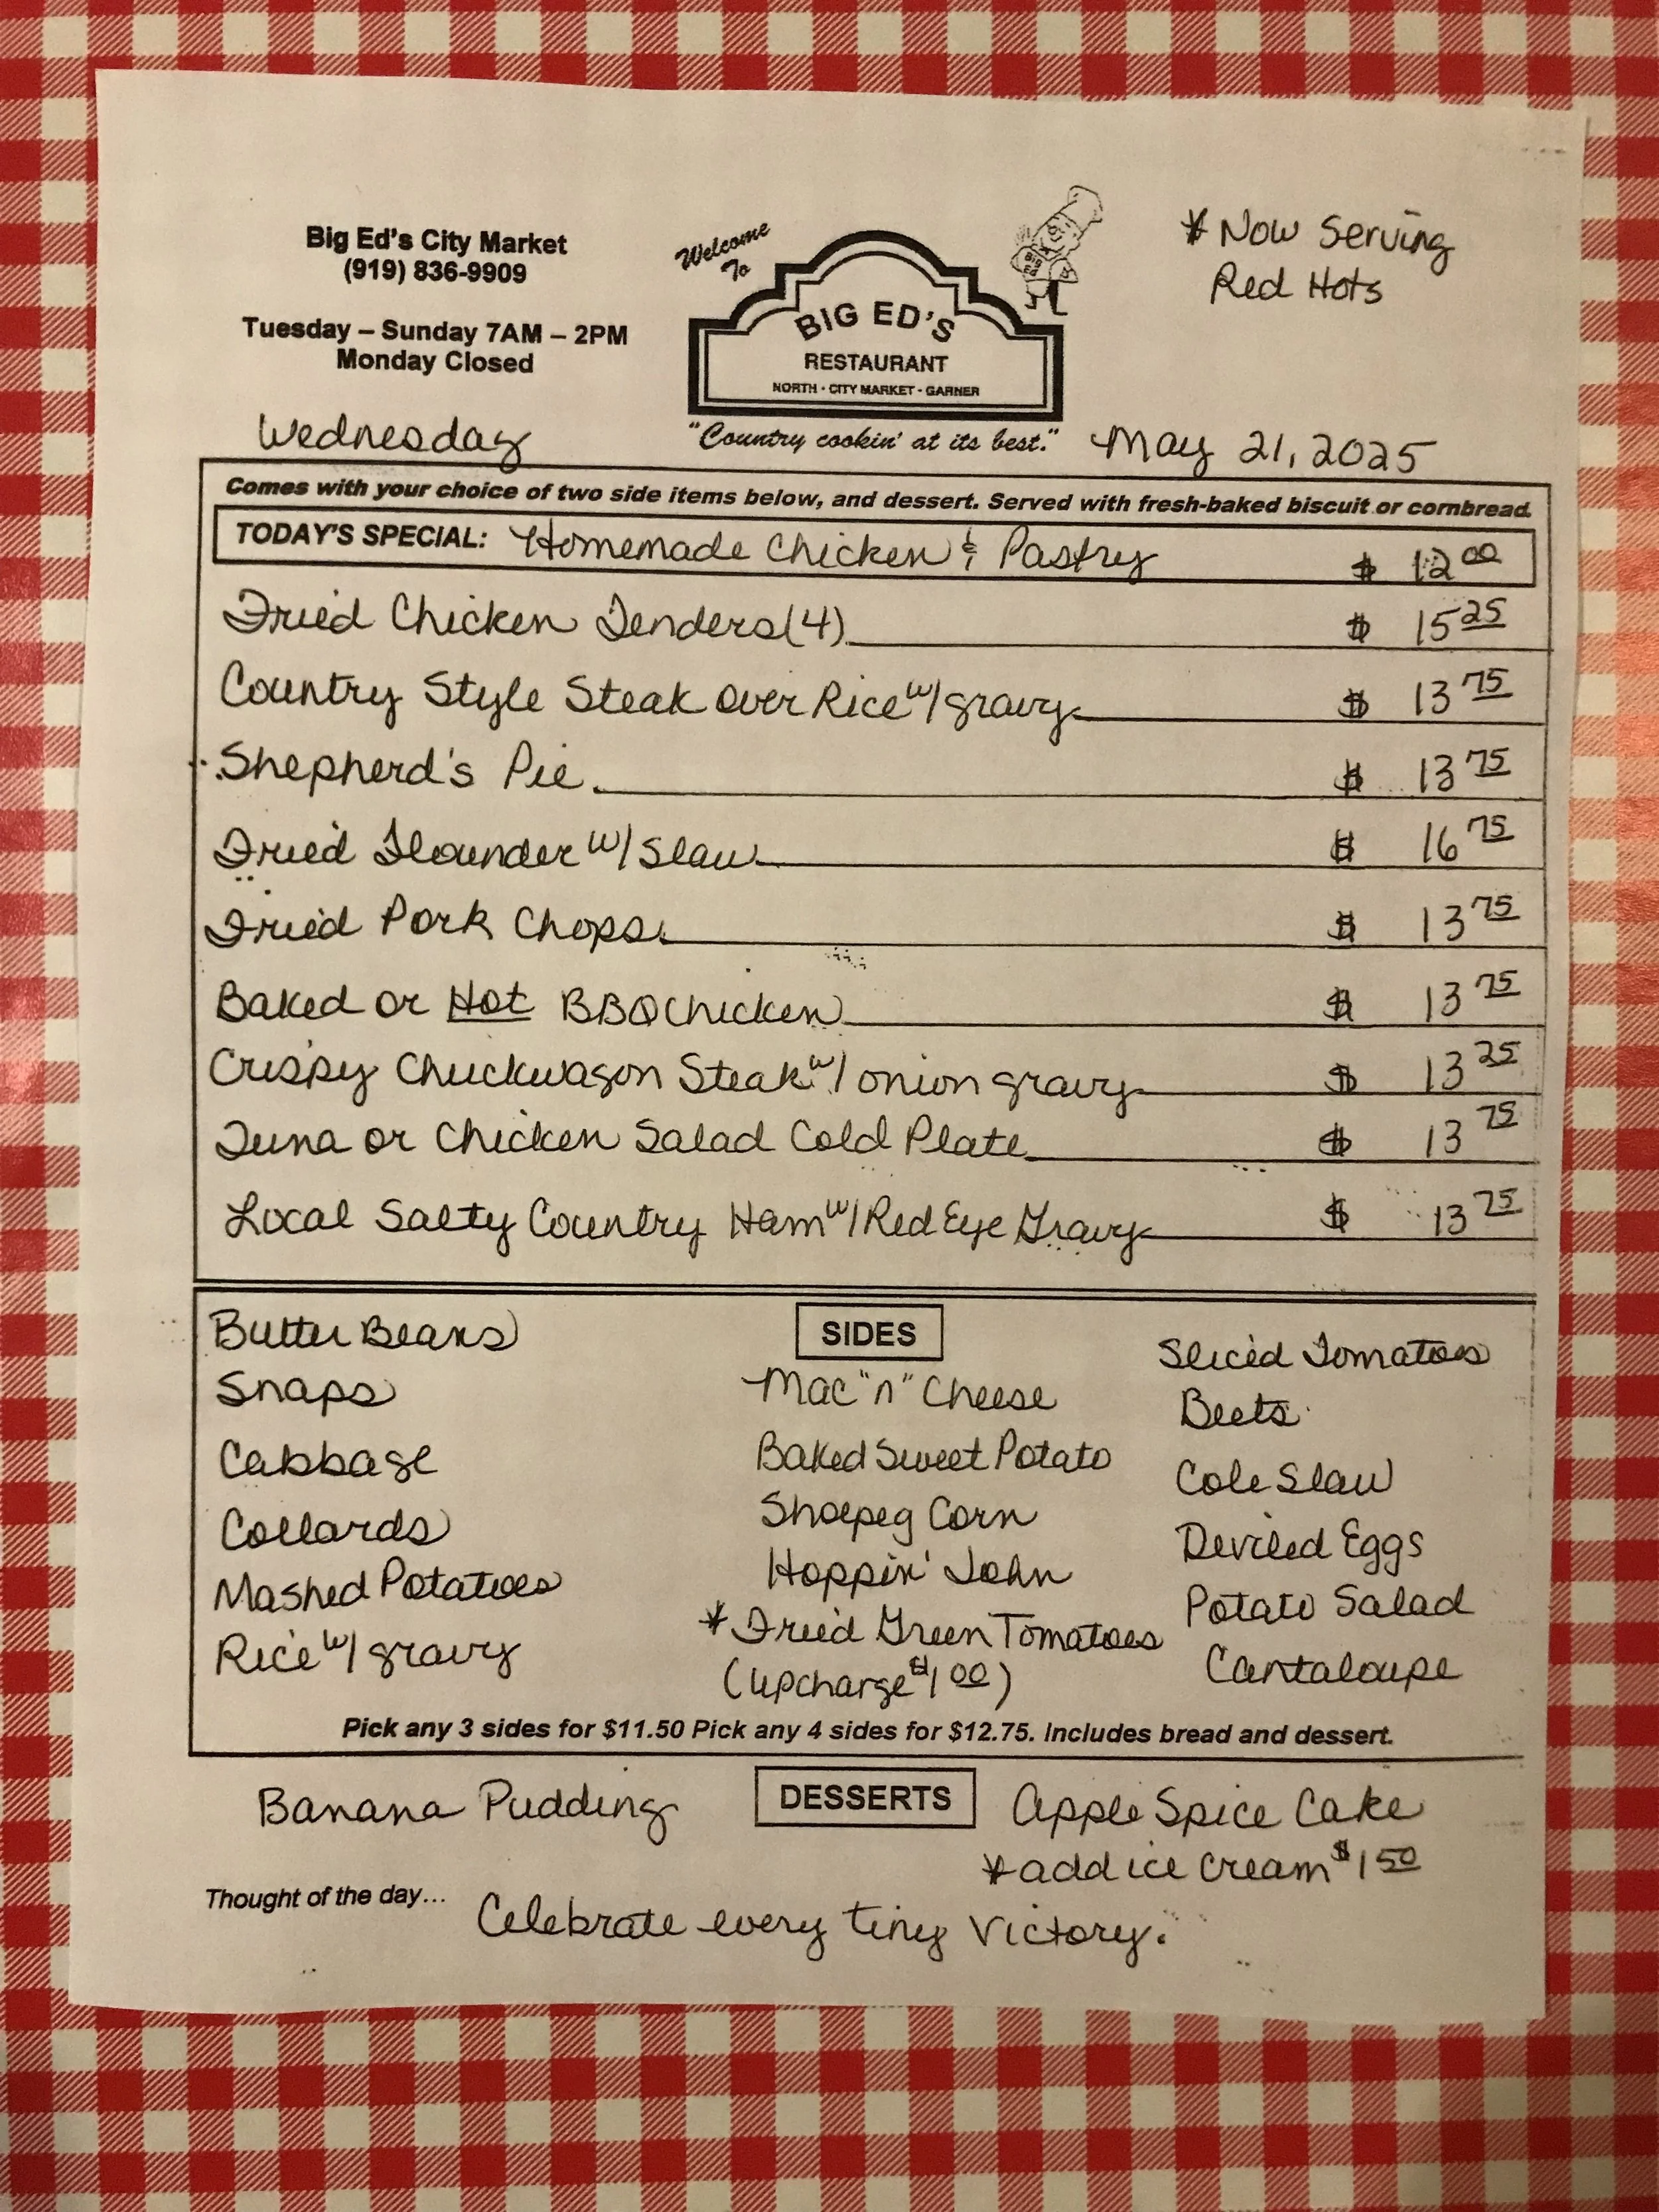 Big Ed's City Market
(919) 836-9909
Tuesday – Sunday 7AM – 2PM
Monday Closed
Welcome
To
BIG ED'S
RESTAURANT
NORTH · CITY MARKET · GARNER
"Country cookin' at its best."
* Now Serving
Red Hots
Wednesday
May 21, 2025
Comes with your choice of two side items below, and dessert. Served with fresh-baked biscuit or cornbread.
TODAY'S SPECIAL: Homemade Chicken & Pastry $ 12 00
Fried Chicken Tenders (4) $ 15 25
Country Style Steak Over Rice w/ gravy $ 13 75
Shepherd's Pie $ 13 75
Fried Flounder w/ Slaw $ 16 75
Fried Pork Chops $ 13 75
Baked or Hot BBQ Chicken $ 13 75
Crispy Chuckwagon Steak w/ onion gravy $ 13 25
Tuna or Chicken Salad Cold Plate $ 13 75
Local Salty Country Ham w/ Red Eye Gravy $ 13 75
SIDES
Butter Beans
Snaps
Cabbage
Collards
Mashed Potatoes
Rice w/ gravy
Mac "n" Cheese
Baked Sweet Potato
Shoepeg Corn
Hoppin' John
* Fried Green Tomatoes
(upcharge $1 00)
Sliced Tomatoes
Beets
Cole Slaw
Deviled Eggs
Potato Salad
Cantaloupe
Pick any 3 sides for $11.50 Pick any 4 sides for $12.75. Includes bread and dessert.
DESSERTS
Banana Pudding
Apple Spice Cake
* add ice cream $1 50
Thought of the day... Celebrate every tiny victory.